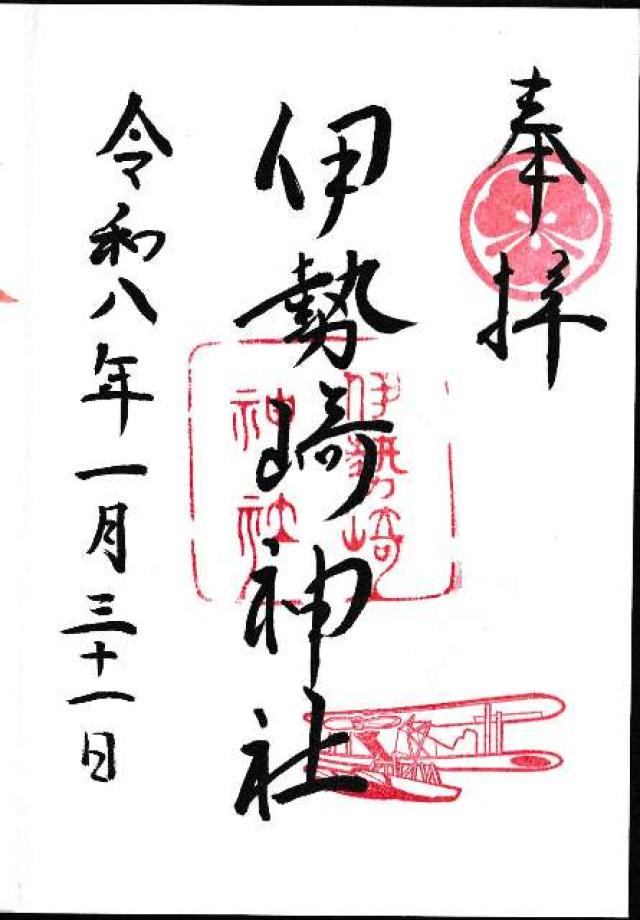 奉拝
伊勢崎神社
伊勢崎
神社
令和八年一月三十一日